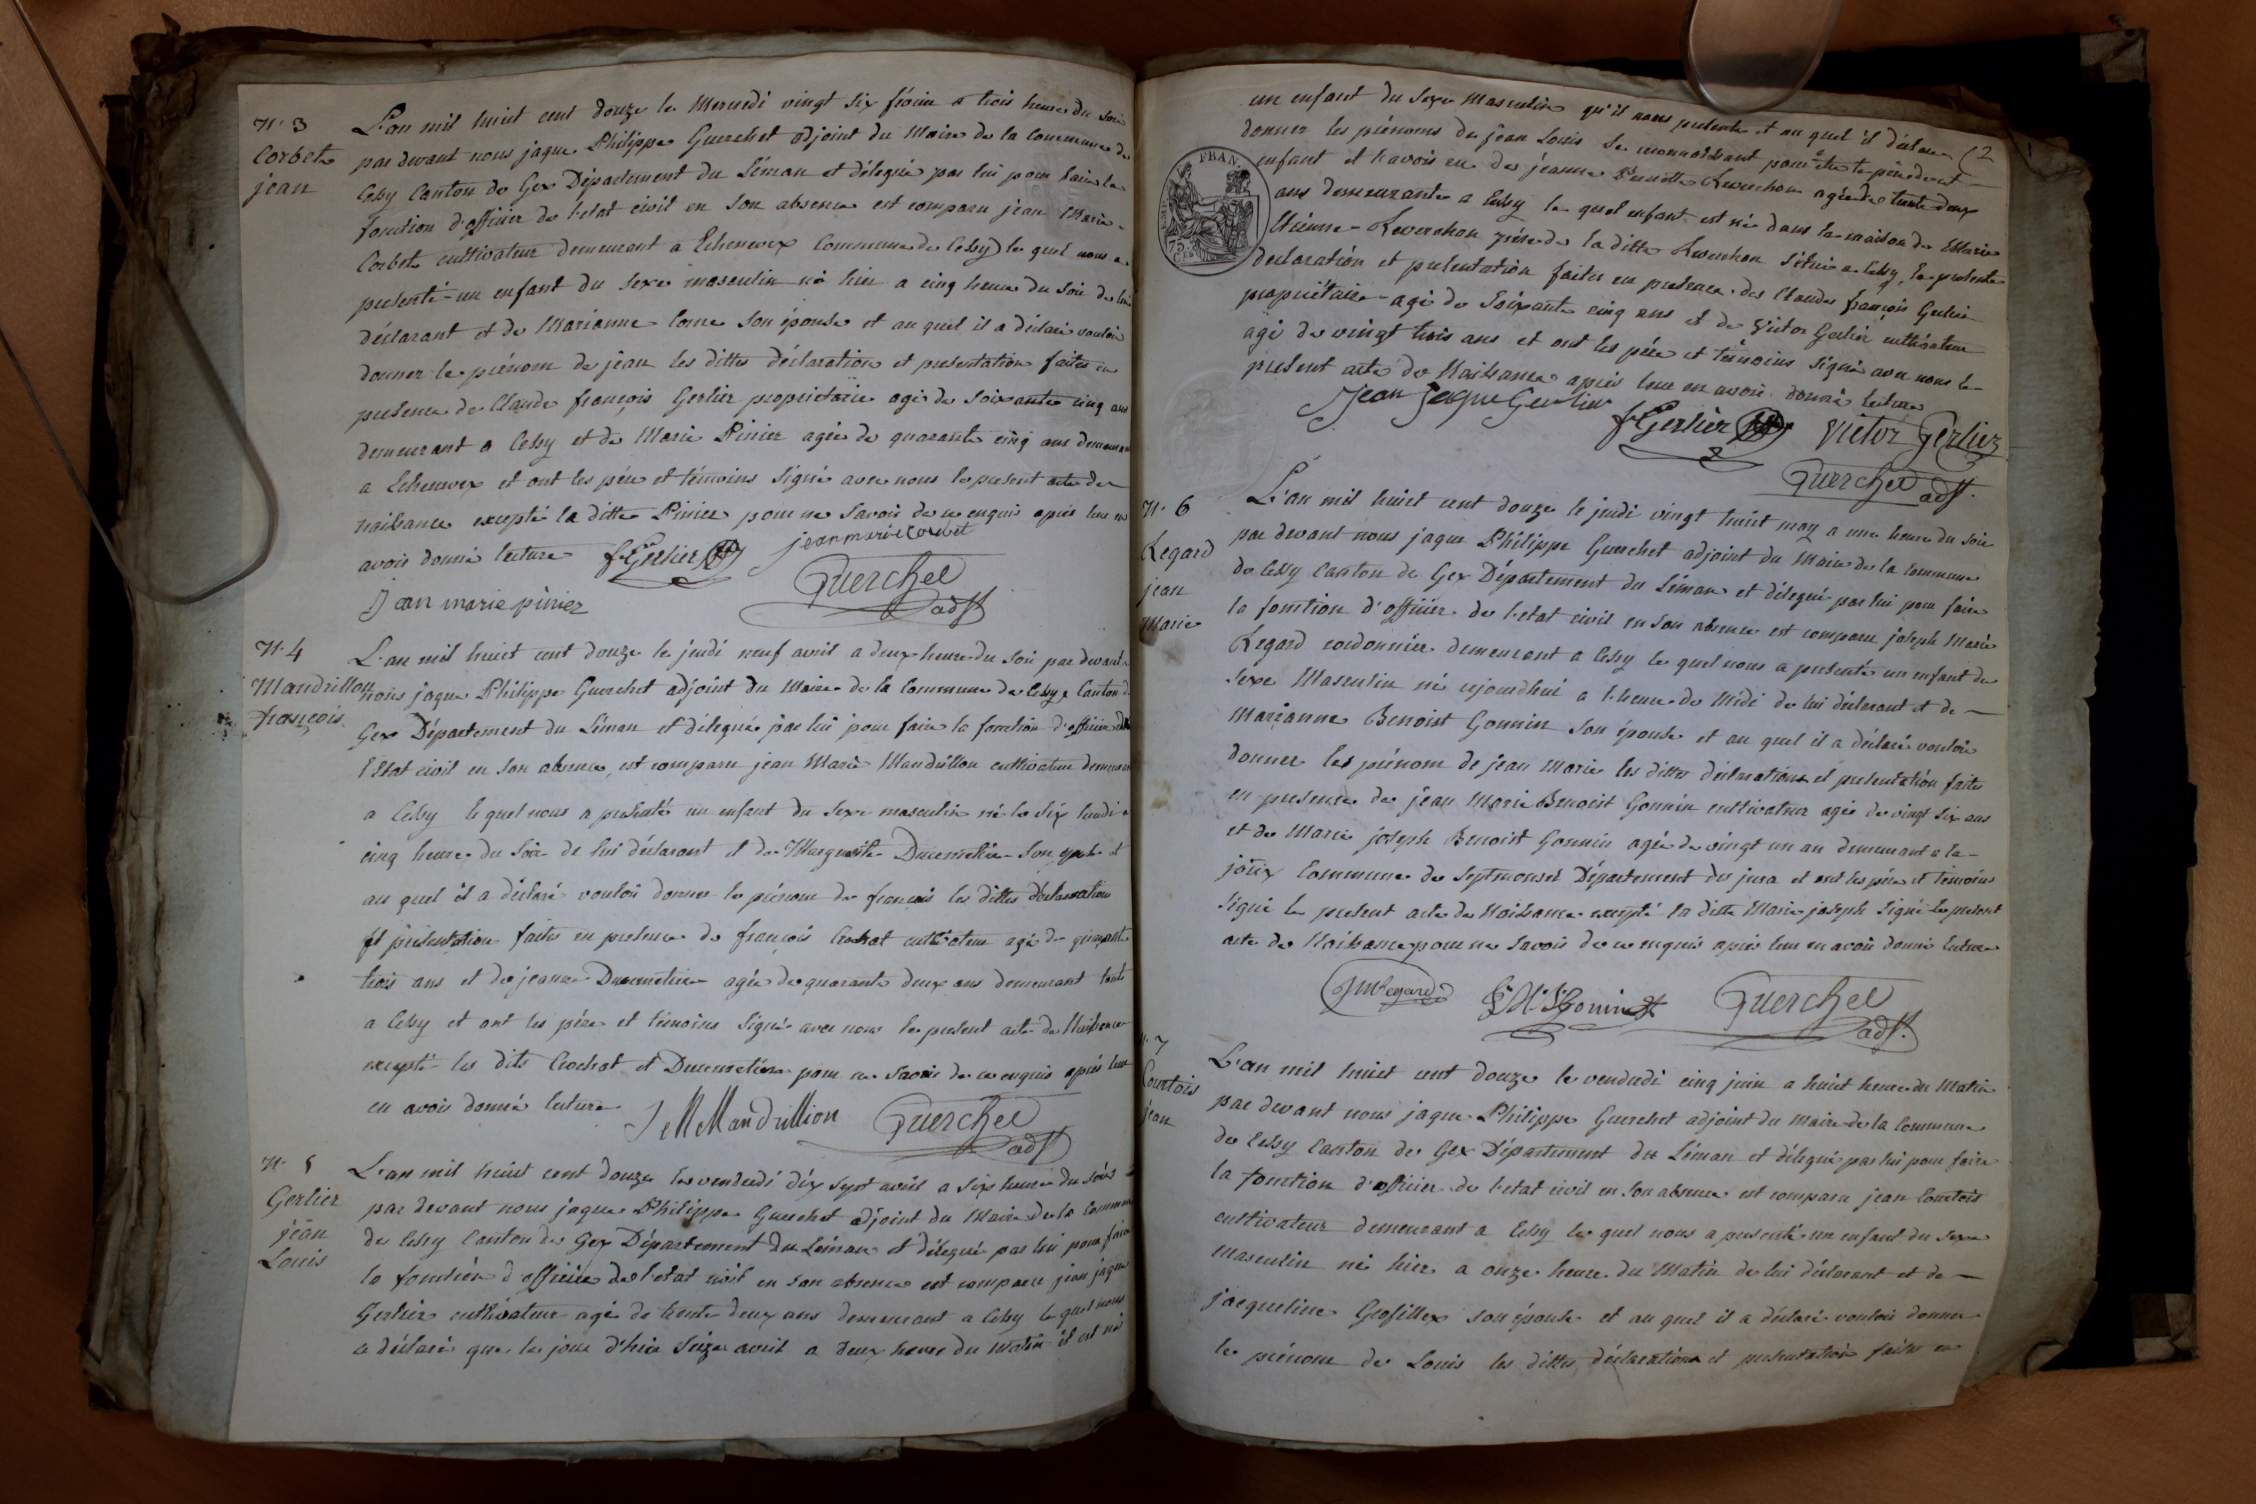 N.° 3
Corbet
jean
L'an mil huit cent douze le Mercredi vingt six février a trois heure du soir
par devant nous jaque Philippe Guerchet adjoint du Maire de la Commune de
Cessy Canton de Gex Département du Léman et délégué par lui pour faire la
fonction d'officier de l'etat civil en son absence est comparu jean Marie
Corbet cultivateur demeurant a Echenevex Commune de Cessy le quel nous a
presenté un enfant du sexe masculin né hier a cinq heure du soir de lui
déclarant et de Marianne Corne son épouse et au quel il a déclaré vouloir
donner le prénom de jean les dittes déclaration et presentation faites en
presence de Claude françois Gerlier proprietaire agé de soixante cinq ans
demeurant a Cessy et de Marie Pinier agée de quarante cinq ans demeurant
a Echenevex et ont les pére et témoins signé avec nous le present acte de
naissance excepté la ditte Pinier pour ne savoir de ce enquis après leur en
avoir donné lecture f. Gerlier jean marie corbet
Guerchet
adj.t
Jean marie pinier
N.° 4
Mandrillon
françois
L'an mil huit cent douze le jeudi neuf avril a deux heure du soir par devant
nous jaque Philippe Guerchet adjoint du Maire de la Commune de Cessy Canton de
Gex Département du Léman et délégué par lui pour faire la fonction d'officier de
l'Etat civil en son absence est comparu jean Marie Mandrillon cultivateur demeurant
a Cessy le quel nous a presenté un enfant du sexe masculin né le six lundi a
cinq heure du soir de lui déclarant et de Marguerite Ducimetière son epouse et
au quel il a déclaré vouloir donner le prénom de françois les dittes déclaration
et présentation faites en presence de françois Crochat cultivateur agé de cinquante
trois ans et de jeanne Ducimetière agée de quarante deux ans demeurant touts
a Cessy et ont les pére et témoins signé avec nous le present acte de Naissance
excepté les dits Crochat et Ducimetière pour ne savoir de ce enquis après leur
en avoir donné lecture J M Mandrillion Guerchet
adj.t
N.° 5
Gerlier
jean
Louis
L'an mil huit cent douze le vendredi dix sept avril a six heure du soir
par devant nous jaque Philippe Guerchet adjoint du Maire de la Commune
de Cessy Canton de Gex Département du Léman et délégué par lui pour faire
la fonction d'officier de l'etat civil en son absence est comparu jean jaque
Gerlier cultivateur agé de trente deux ans demeurant a Cessy le quel nous
a déclaré que le jour d'hier seize avril a deux heure du matin il est né
(2
un enfant du sexe Masculin qu'il nous presente et au quel il déclare
donner les prénoms de jean Louis se reconnoissant pour être le père de cet
enfant et l'avoir eu de jeanne Pernette Reverchon agée de trente deux
ans demeurante a Cessy le quel enfant est né dans la maison de Marie
Etienne Reverchon père de la ditte Reverchon située a Cessy, la presente
declaration et presentation faites en presence de Claude françois Gerlier
propriétaire agé de soixante cinq ans et de Victor Gerlier cultivateur
agé de vingt trois ans et ont les pére et témoins signé avec nous le
present acte de Naissance après leur en avoir donné lecture
FRAN.
75.
C.es
Jean Jaque Gerlier
f. Gerlier victor Gerlier
Guerchet adj.t
N.° 6
Regard
jean
Marie
L'an mil huit cent douze le jeudi vingt huit may a une heure du soir
par devant nous jaque Philippe Guerchet adjoint du Maire de la Commune
de Cessy Canton de Gex Département du Léman et délégué par lui pour faire
la fonction d'officier de l'etat civil en son absence est comparu joseph Marie
Regard cordonnier demeurant a Cessy le quel nous a presenté un enfant du
sexe Masculin né aujourd'hui a l'heure de Midi de lui déclarant et de
Marianne Benoist Gonnin son épouse et au quel il a déclaré vouloir
donner les prénom de jean Marie les dittes déclaration et presentation faites
en presence de jean Marie Benoist Gonnin cultivateur agé de vingt six ans
et de Marie joseph Benoist Gonnin agée de vingt un an demeurant a la
joux Commune de Septmoncel Département du jura et ont les pére et témoins
signé le present acte de Naissance excepté la ditte Marie joseph signé le present
acte de Naissance pour ne savoir de ce enquis après leur en avoir donné lecture
J M Regard J. M. B. Gonin Guerchet
adj.t
N.° 7
Courtois
jean
L'an mil huit cent douze le vendredi cinq juin a huit heure du Matin
par devant nous jaque Philippe Guerchet adjoint du Maire de la Commune
de Cessy Canton de Gex Département du Léman et délégué par lui pour faire
la fonction d'officier de l'etat civil en son absence est comparu jean Courtois
cultivateur demeurant a Cessy le quel nous a presenté un enfant du sexe
masculin né hier a onze heure du Matin de lui déclarant et de
jacqueline Grosfillex son épouse et au quel il a déclaré vouloir donner
le prénom de Louis les dittes déclaration et presentation faites en